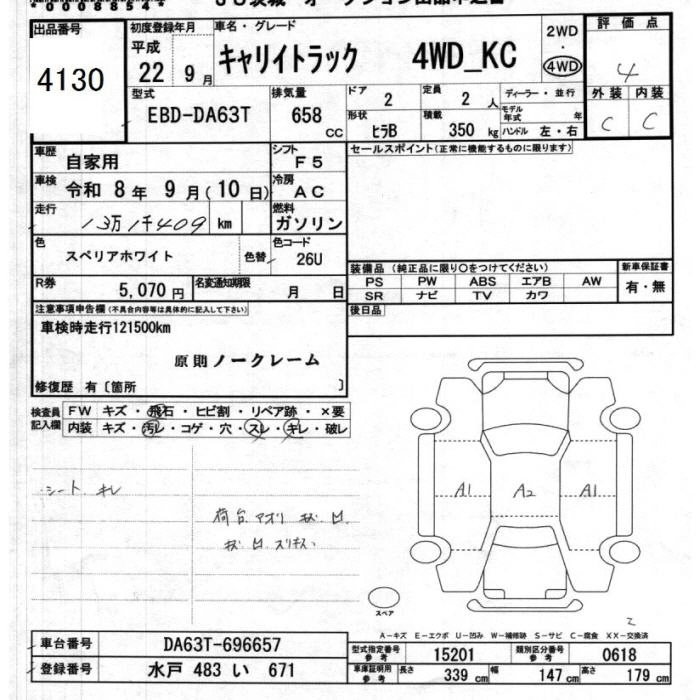 *00088544*
出品番号 初度登録年月 車名・グレード 2WD 評価点
4130 平成 22 9月 キャリイトラック 4WD_KC ・ 4WD 4
型式 排気量 ドア 2 定員 2人 ディーラー・並行 外装 内装
EBD-DA63T 658 CC 形状 ヒラB 積載 350kg モデル年式 年 ハンドル 左・右 C C
車歴 自家用 シフト F5 セールスポイント(正常に機能するものに限ります)
車検 令和 8年 9月(10日) 冷房 AC
走行 13万1千409 km 燃料 ガソリン
色 スペリアホワイト 色替 色コード 26U
装備品(純正品に限り○をつけてください) 新車保証書
PS PW ABS エアB AW 有・無
SR ナビ TV カワ
R券 5,070円 名変通知期限 月 日
後日品
注意事項申告欄(不具合内容等は具体的に記入して下さい)
車検時走行121500km
原則ノークレーム
修復歴 有〔箇所 〕
検査員記入欄 FW キズ・飛石・ヒビ割・リペア跡・×要
内装 キズ・汚レ・コゲ・穴・スレ・キレ・破レ
シート キレ
荷台 アオリ
A1 A2 A1
スペア
2
A-キズ E-エクボ U-凹み W-補修跡 S-サビ C-腐食 XX-交換済
車台番号 DA63T-696657 型式指定番号 参考 15201 類別区分番号 参考 0618
登録番号 水戸 483 い 671 車庫証明用 参考 長さ 339cm 幅 147cm 高さ 179cm